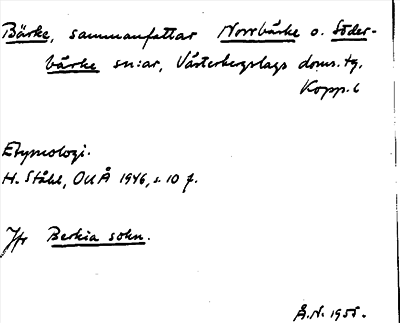 Bärke, sammanfattar Norrbärke o. Söder-
bärke sn:ar, Västerbergslags doms. tg.
Kopp. l
Etymologi.
H. Ståhl, OUÅ 1946, s. 10 f.
Jfr Berkia sokn.
Å.N. 1955.